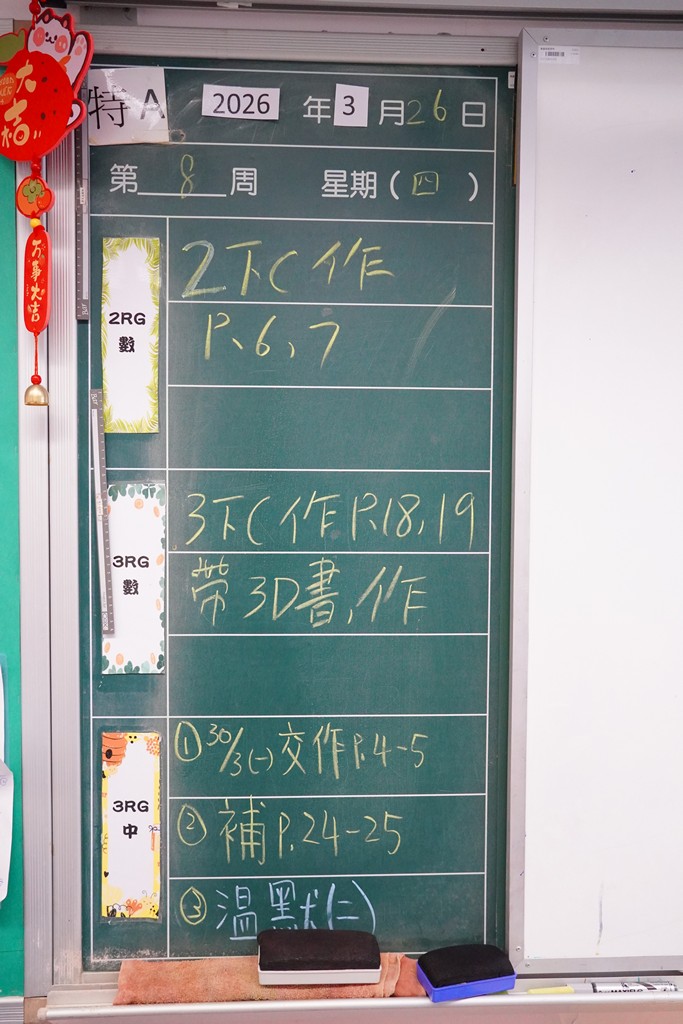 大吉
万事大吉
特A
2026 年 3 月 26 日
第 8 周 星期 ( 四 )
2RG
數
2下C作
P. 6、7
3RG
數
3下C作P.18, 19
帶3D書,作
3RG
中
① 30/3(一)交作P.4-5
② 補P.24-25
③ 溫默(二)